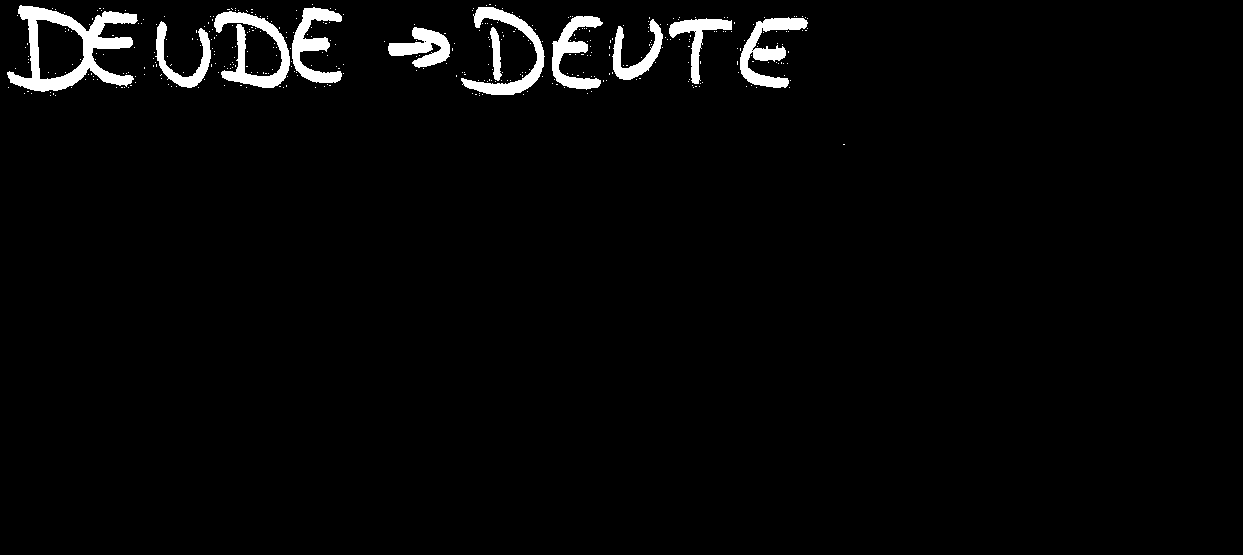 DEUDE → DEUTE